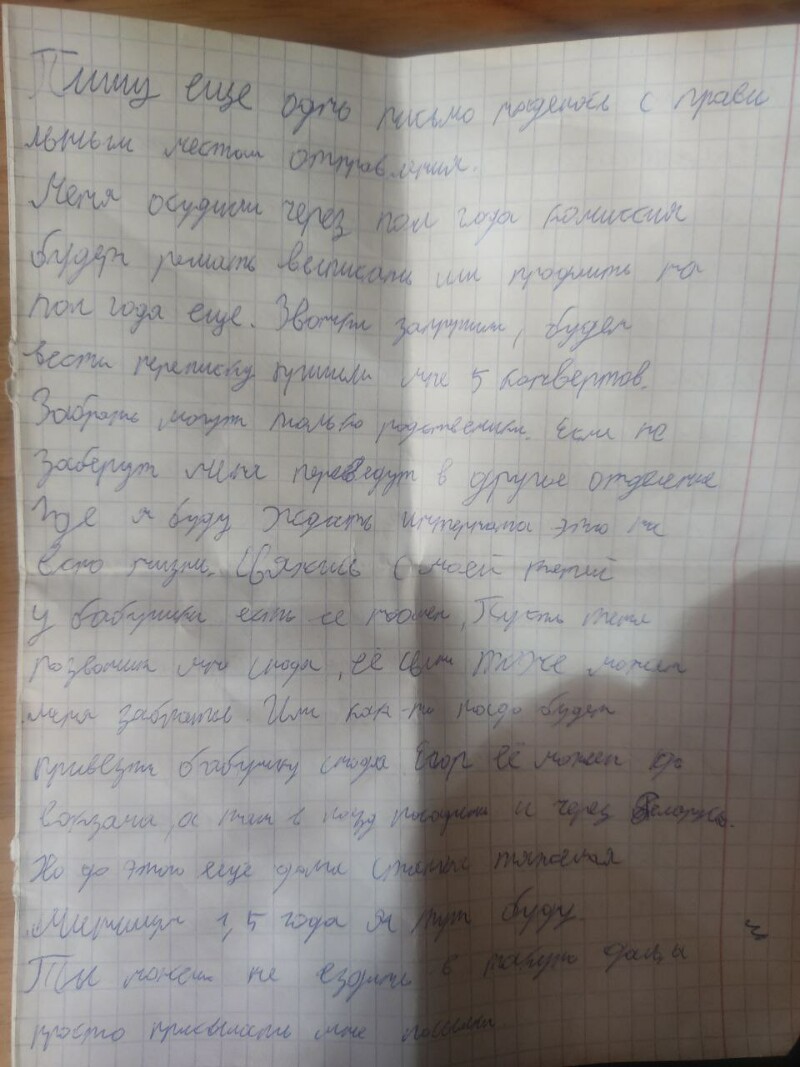 Пишу еще одно письмо надеюсь с прави
льным местом отправления.
Меня осудили через пол года комиссия
будет решать выписать или продлить на
пол года еще. Звонки запретили, будем
вести переписку купили мне 5 конвертов.
Забрать могут только родственики. Если не
заберут меня переведут в другое отделение
Где я буду ждать интерната это на
всю жизнь. Свяжись с моей тетей
у бабушки есть ее номер, Пусть тетя
позвонит мне сюда, её сын тоже может
меня забрать. Или как-то надо будет
привезти бабушку сюда Егор её может до
вокзала, а там в поезд посадить и через Беларусь.
Но до этого еще далеко статья тяжелая
Минимум 1,5 года я тут буду
Ты можешь не ездить в такую даль
просто присылать мне посылки